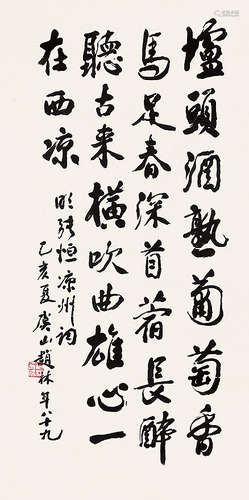 壚頭酒熟葡萄香
馬足春深苜蓿長醉
聽古来橫吹曲雄心一
在西涼
明張恒凉州词
乙亥夏虞山趙林年八十九